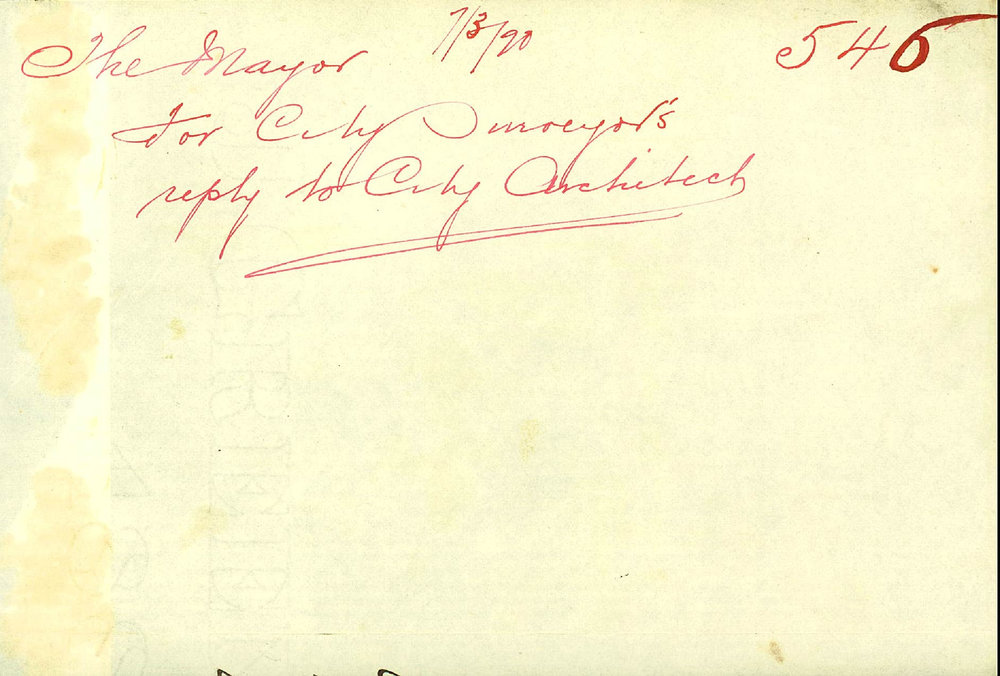 The Mayor 7/3/90 546
For City Surveyor's
reply to City Architect